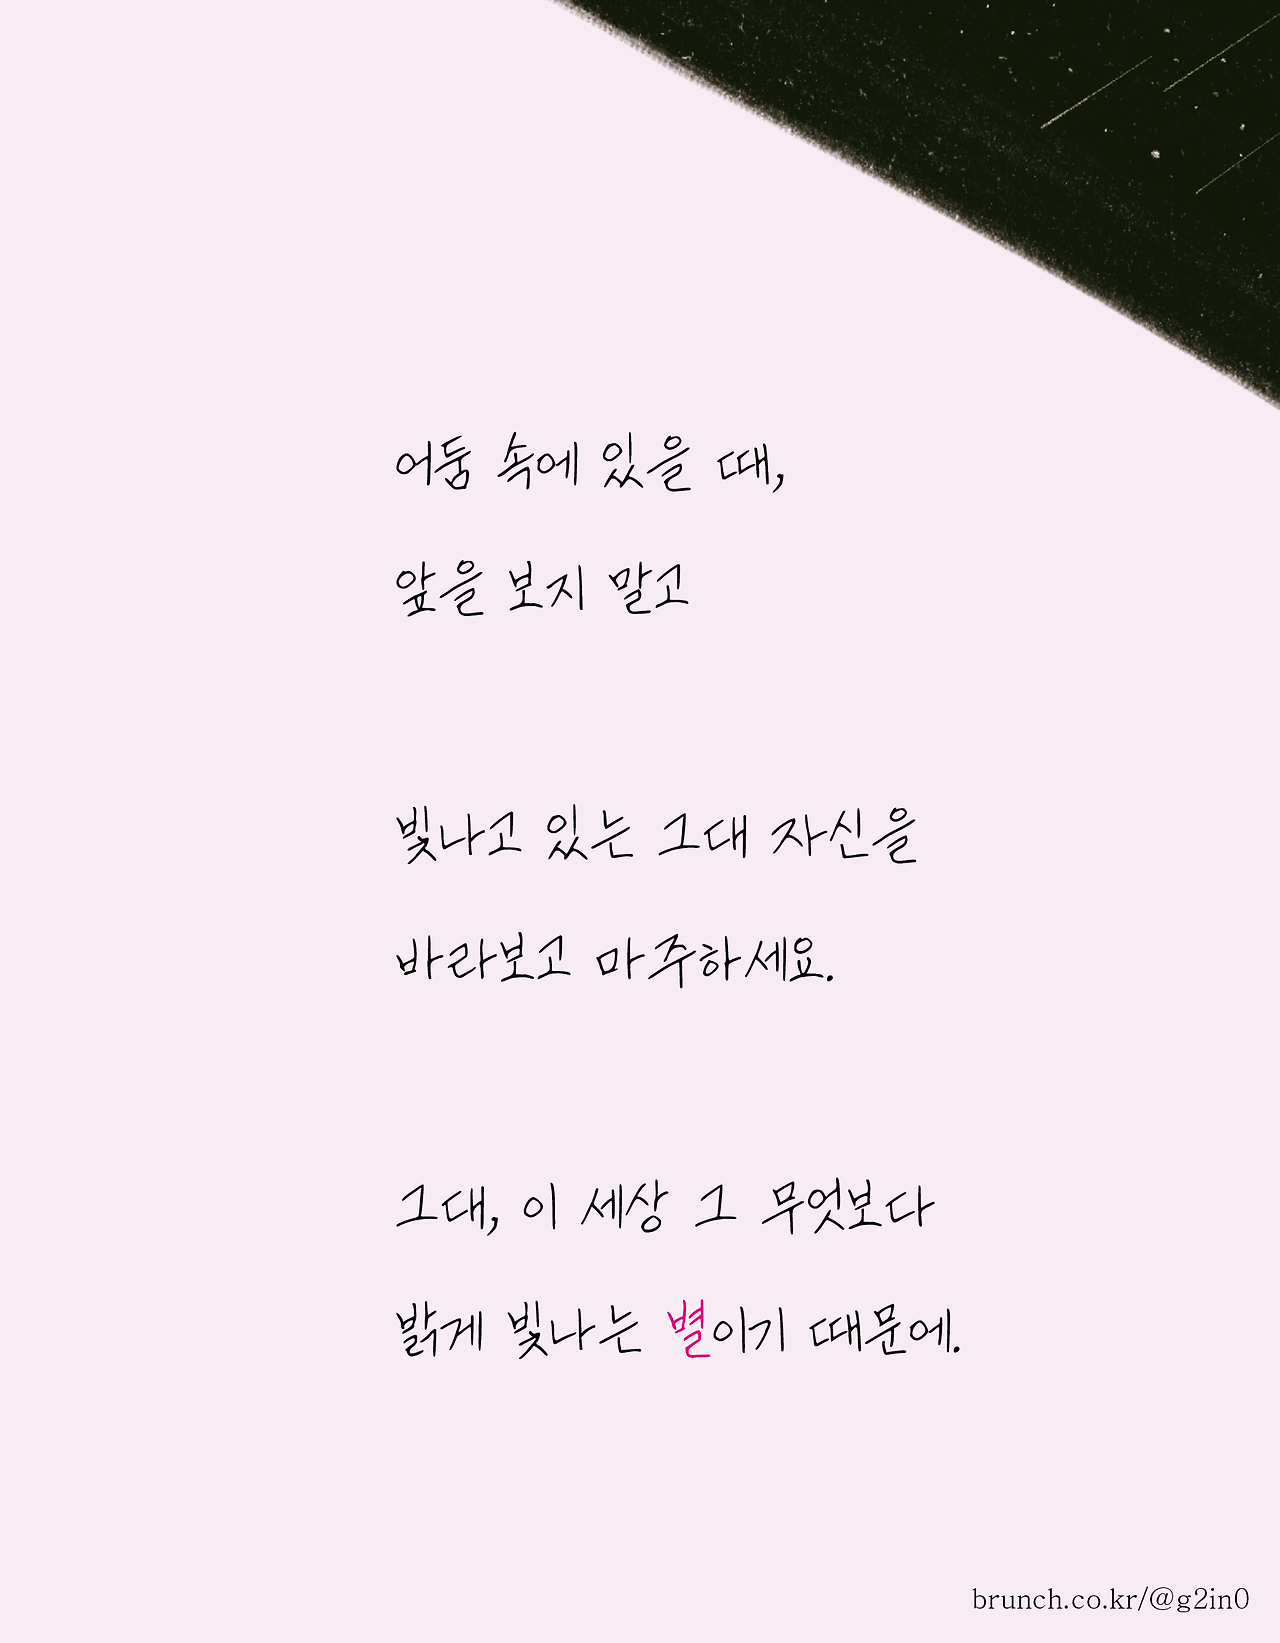 어둠 속에 있을 때,
앞을 보지 말고
빛나고 있는 그대 자신을
바라보고 마주하세요.
그대, 이 세상 그 무엇보다
밝게 빛나는 별이기 때문에.
brunch.co.kr/@g2in0